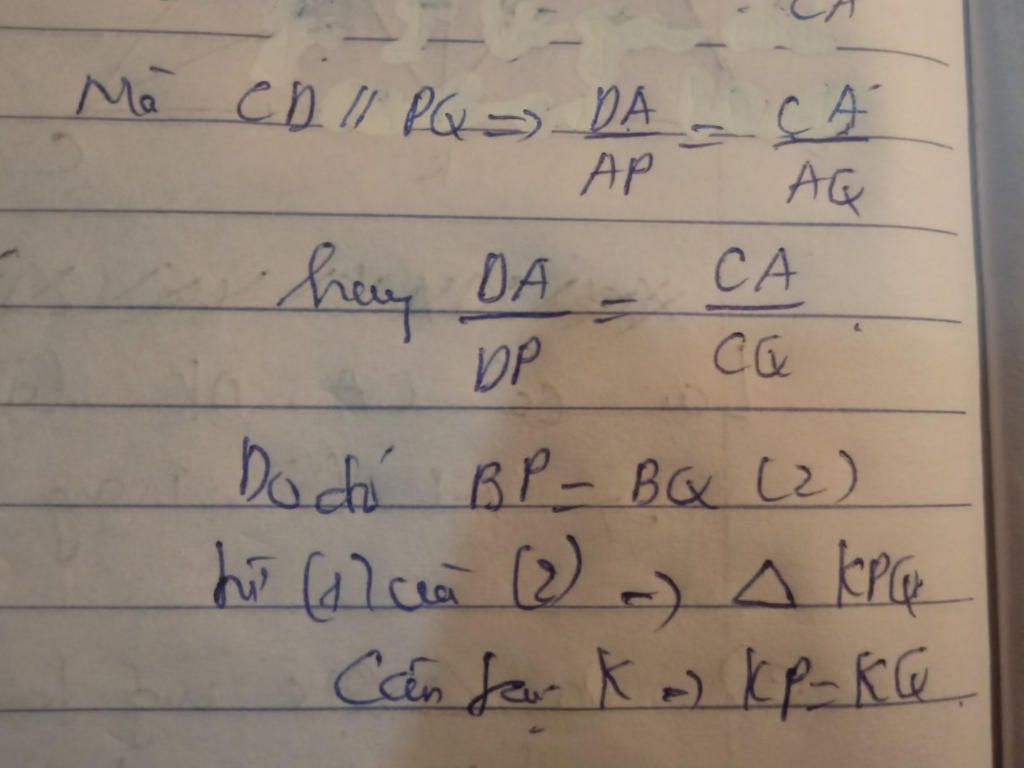 CA
Mà CD // PQ => DA/AP = CA/AQ
hay DA/DP = CA/CQ
Do đó BP = BQ (2)
từ (1) và (2) => △ KPQ
Cân tại K => KP = KQ